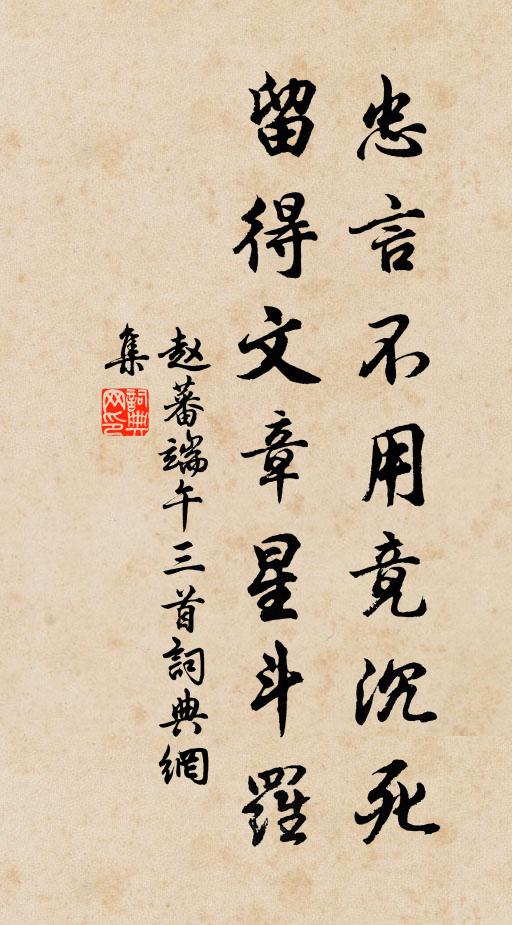 忠言不用竟沉死
留得文章星斗羅
赵蕃端午三首詞典網
集
詞典
网印